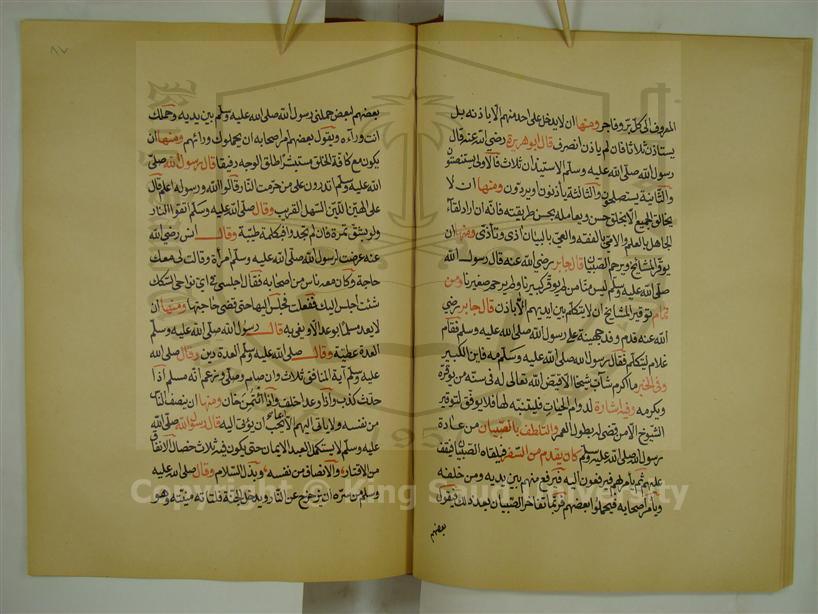 المعروف الى كل بر وفاجر ومنها ان لا يدخل على احد منهم الا باذنه بل
يستاذن ثلاثا فان لم ياذن انصرف قال ابو هريرة رضي الله عنه قال
رسول الله صلى الله عليه وسلم الاستيذان ثلاث فالاولى يستنصتون
والثانية يستصلحون والثالثة ياذنون او يردون ومنها ان لا
يخالق الجميع الا بخلق حسن ويعامله بحسن طريقته فانه ان اراد لقاء
الجاهل بالعلم والامي بالفقه والعي بالبيان اذى وتأذى ومنها ان
يوقر المشايخ ويرحم الصبيان قال جابر رضي الله عنه قال رسول الله
صلى الله عليه وسلم ليس منا من لم يوقر كبيرنا ولم يرحم صغيرنا ومن
تمام توقير المشايخ ان لا يتكلم بين ايديهم الا باذن قال جابر رضي
الله عنه قدم وفد جهينة على رسول الله صلى الله عليه وسلم فقام
غلام ليتكلم فقال رسول الله صلى الله عليه وسلم مه فاين الكبير
وفى الخبر ما اكرم شاب شيخا الا قيض الله تعالى له فى سنه من يوقره
ويكرمه وفيه اشارة لدوام الحيات فليتنبه لها فلا يوفق لتوقير
الشيوخ الا من قضى له بطول العمر والتلطف بالصبيان من عادة
رسول الله صلى الله عليه وسلم كان يقدم من السفر فيلقاه الصبيان فيقف
عليهم ثم يامر بهم فيرفعون اليه فيرفع منهم بين يديه ومن خلفه
ويامر اصحابه فيحملوا بعضهم فربما تفاخر الصبيان بعد ذلك فيقول
بعضهم
٨٧
بعضهم لبعض حملنى رسول الله صلى الله عليه وسلم بين يديه وحملك
انت ورآءه ويقول بعضهم امر اصحابه ان يحملوك ورائهم ومنها ان
يكون مع كافة الخلق مستبشرا طلق الوجه رفيقا قال رسول الله صلى
الله عليه وسلم اتدرون على من حرمت النار قالوا الله ورسوله اعلم قال
على الهين اللين السهل القريب وقال صلى الله عليه وسلم اتقوا النار
ولو بشق تمرة فان لم تجدوا فبكلمة طيبة وقال انس رضي الله
عنه عرضت لرسول الله صلى الله عليه وسلم امرأة وقالت لى معك
حاجة وكان معه ناس من اصحابه فقال اجلسى فى اي نواحى السكك
شئت اجلس اليك ففعلت فجلس اليها حتى قضى حاجتها ومنها ان
لا يعد مسلما بوعد الا ويفى به قال رسول الله صلى الله عليه وسلم
العدة عطية وقال صلى الله عليه وسلم العدة دين وقال صلى الله
عليه وسلم آية المنافق ثلاث وان صام وصلى وزعم انه مسلم اذا
حدث كذب واذا وعد اخلف واذا ائتمن خان ومنها ان ينصف الناس
من نفسه ولا ياتى اليهم الا بما يحب ان يؤتى اليه قال رسول الله صلى الله
عليه وسلم لا يستكمل العبد الايمان حتى يكون فيه ثلاث خصال الانفاق
من الاقتار والانصاف من نفسه وبذل السلام وقال صلى الله عليه
وسلم من سره ان يزحزح عن النار ويدخل الجنة فلتاته منيته وهو
Copyright © King Saud University